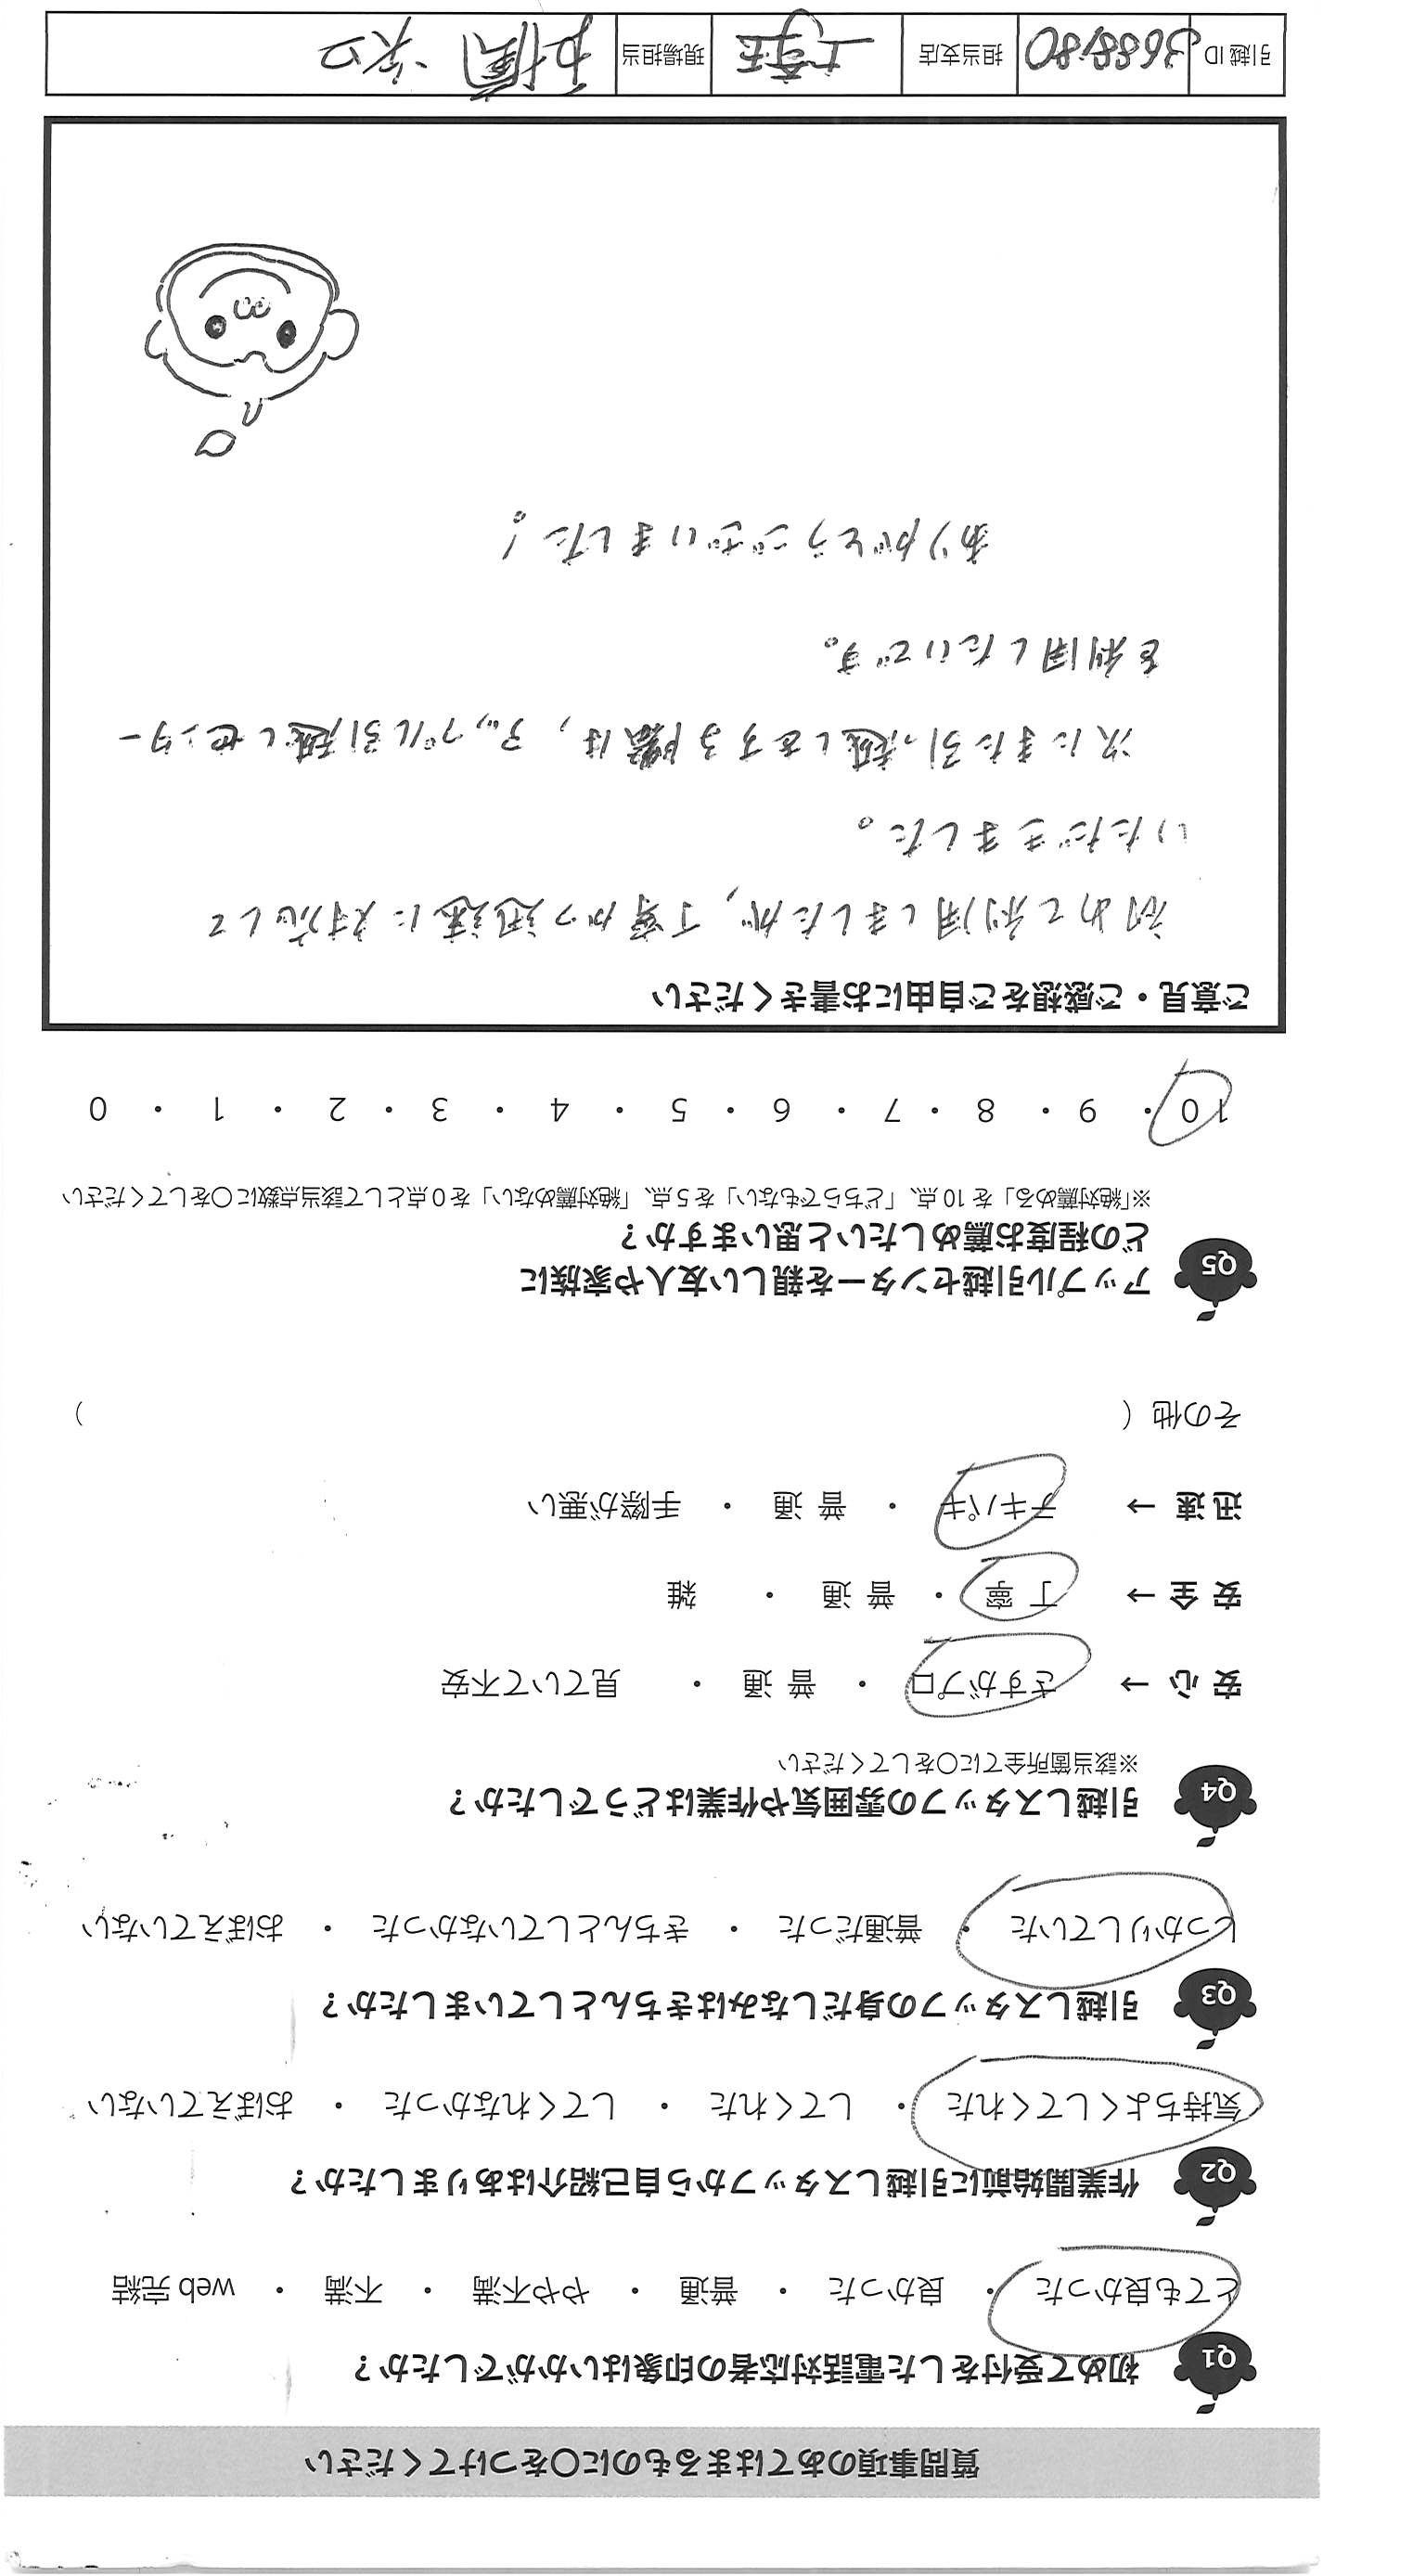 質問事項のあてはまるものに〇をつけてください
Q1 初めて受付をした電話対応者の印象はいかがでしたか？
とても良かった ・ 良かった ・ 普通 ・ やや不満 ・ 不満 ・ web 完結
Q2 作業開始前に引越しスタッフから自己紹介はありましたか？
気持ちよくしてくれた ・ してくれた ・ してくれなかった ・ おぼえていない
Q3 引越しスタッフの身だしなみはきちんとしていましたか？
しっかりしていた ・ 普通だった ・ きちんとしていなかった ・ おぼえていない
Q4 引越しスタッフの雰囲気や作業はどうでしたか？
※該当箇所全てに〇をしてください
安 心 → さすがプロ ・ 普 通 ・ 見ていて不安
安 全 → 丁 寧 ・ 普 通 ・ 雑
迅 速 → テキパキ ・ 普 通 ・ 手際が悪い
その他（ ）
Q5 アップル引越センターを親しい友人や家族に
どの程度お薦めしたいと思いますか？
※「絶対薦める」を 10 点、「どちらでもない」を 5 点、「絶対薦めない」を 0 点として該当点数に〇をしてください
10 ・ 9 ・ 8 ・ 7 ・ 6 ・ 5 ・ 4 ・ 3 ・ 2 ・ 1 ・ 0
ご意見・ご感想をご自由にお書きください
初めて利用しましたが、丁寧かつ迅速に対応して
いただきました。
次にまた引っ越しをする際は、アップル引越しセンター
を利用したいです。
ありがとうございました！
引越 ID 3688180 担当支店 埼玉 現場担当